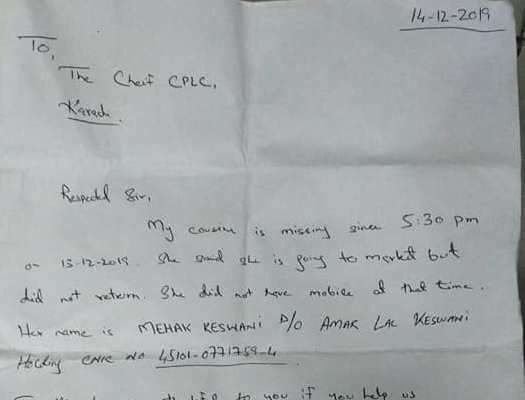 14-12-2019
To,
The Cheif CPLC,
Karachi.
Respected Sir,
My cousin is missing since 5:30 pm
on 13-12-2019. She said she is going to market but
did not return. She did not have mobile at that time.
Her name is MEHAK KESWANI D/O AMAR LAL KESWANI
Holding CNIC NO 45101-0771759-4
to you if you help us